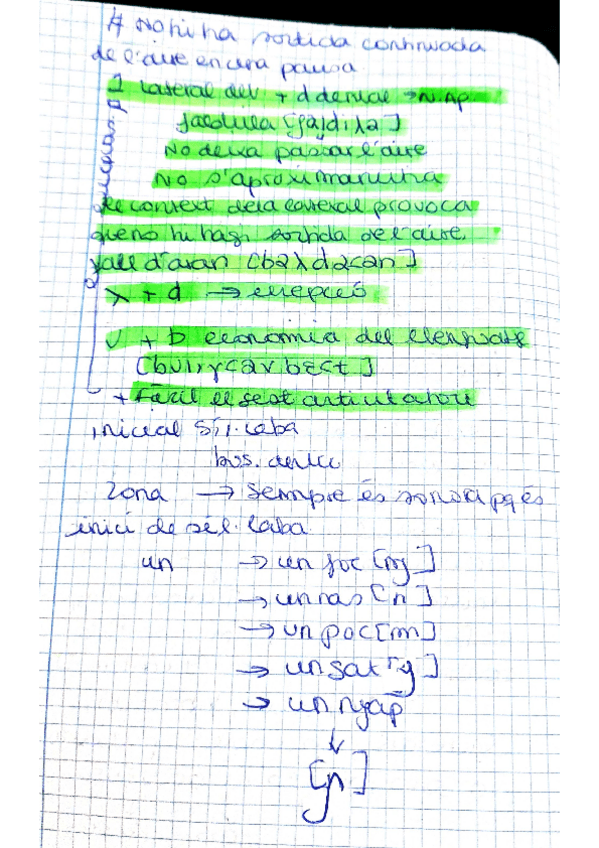 # No hi ha sortida continuada
de l'aire en cara pausa
1 lateral del + d dental → N. Ap.
faldilla [faldiʎa]
No deixa passar l'aire
No s'aproximarà
el context de la lateral provoca
que no hi hagi sortida de l'aire
Vall d'aran [baʎdaɾan]
ʎ + d → excepció
v + b economia del llenguatge
+ Fàcil el gest articulatori
inicial síl·laba
Zona → sempre és sonora pq és
inici de síl·laba
un → un foc [ɱ]
→ un nas [n]
→ un poc [m]
→ un gat [ŋ]
→ un nyap
↓
[ɲ]